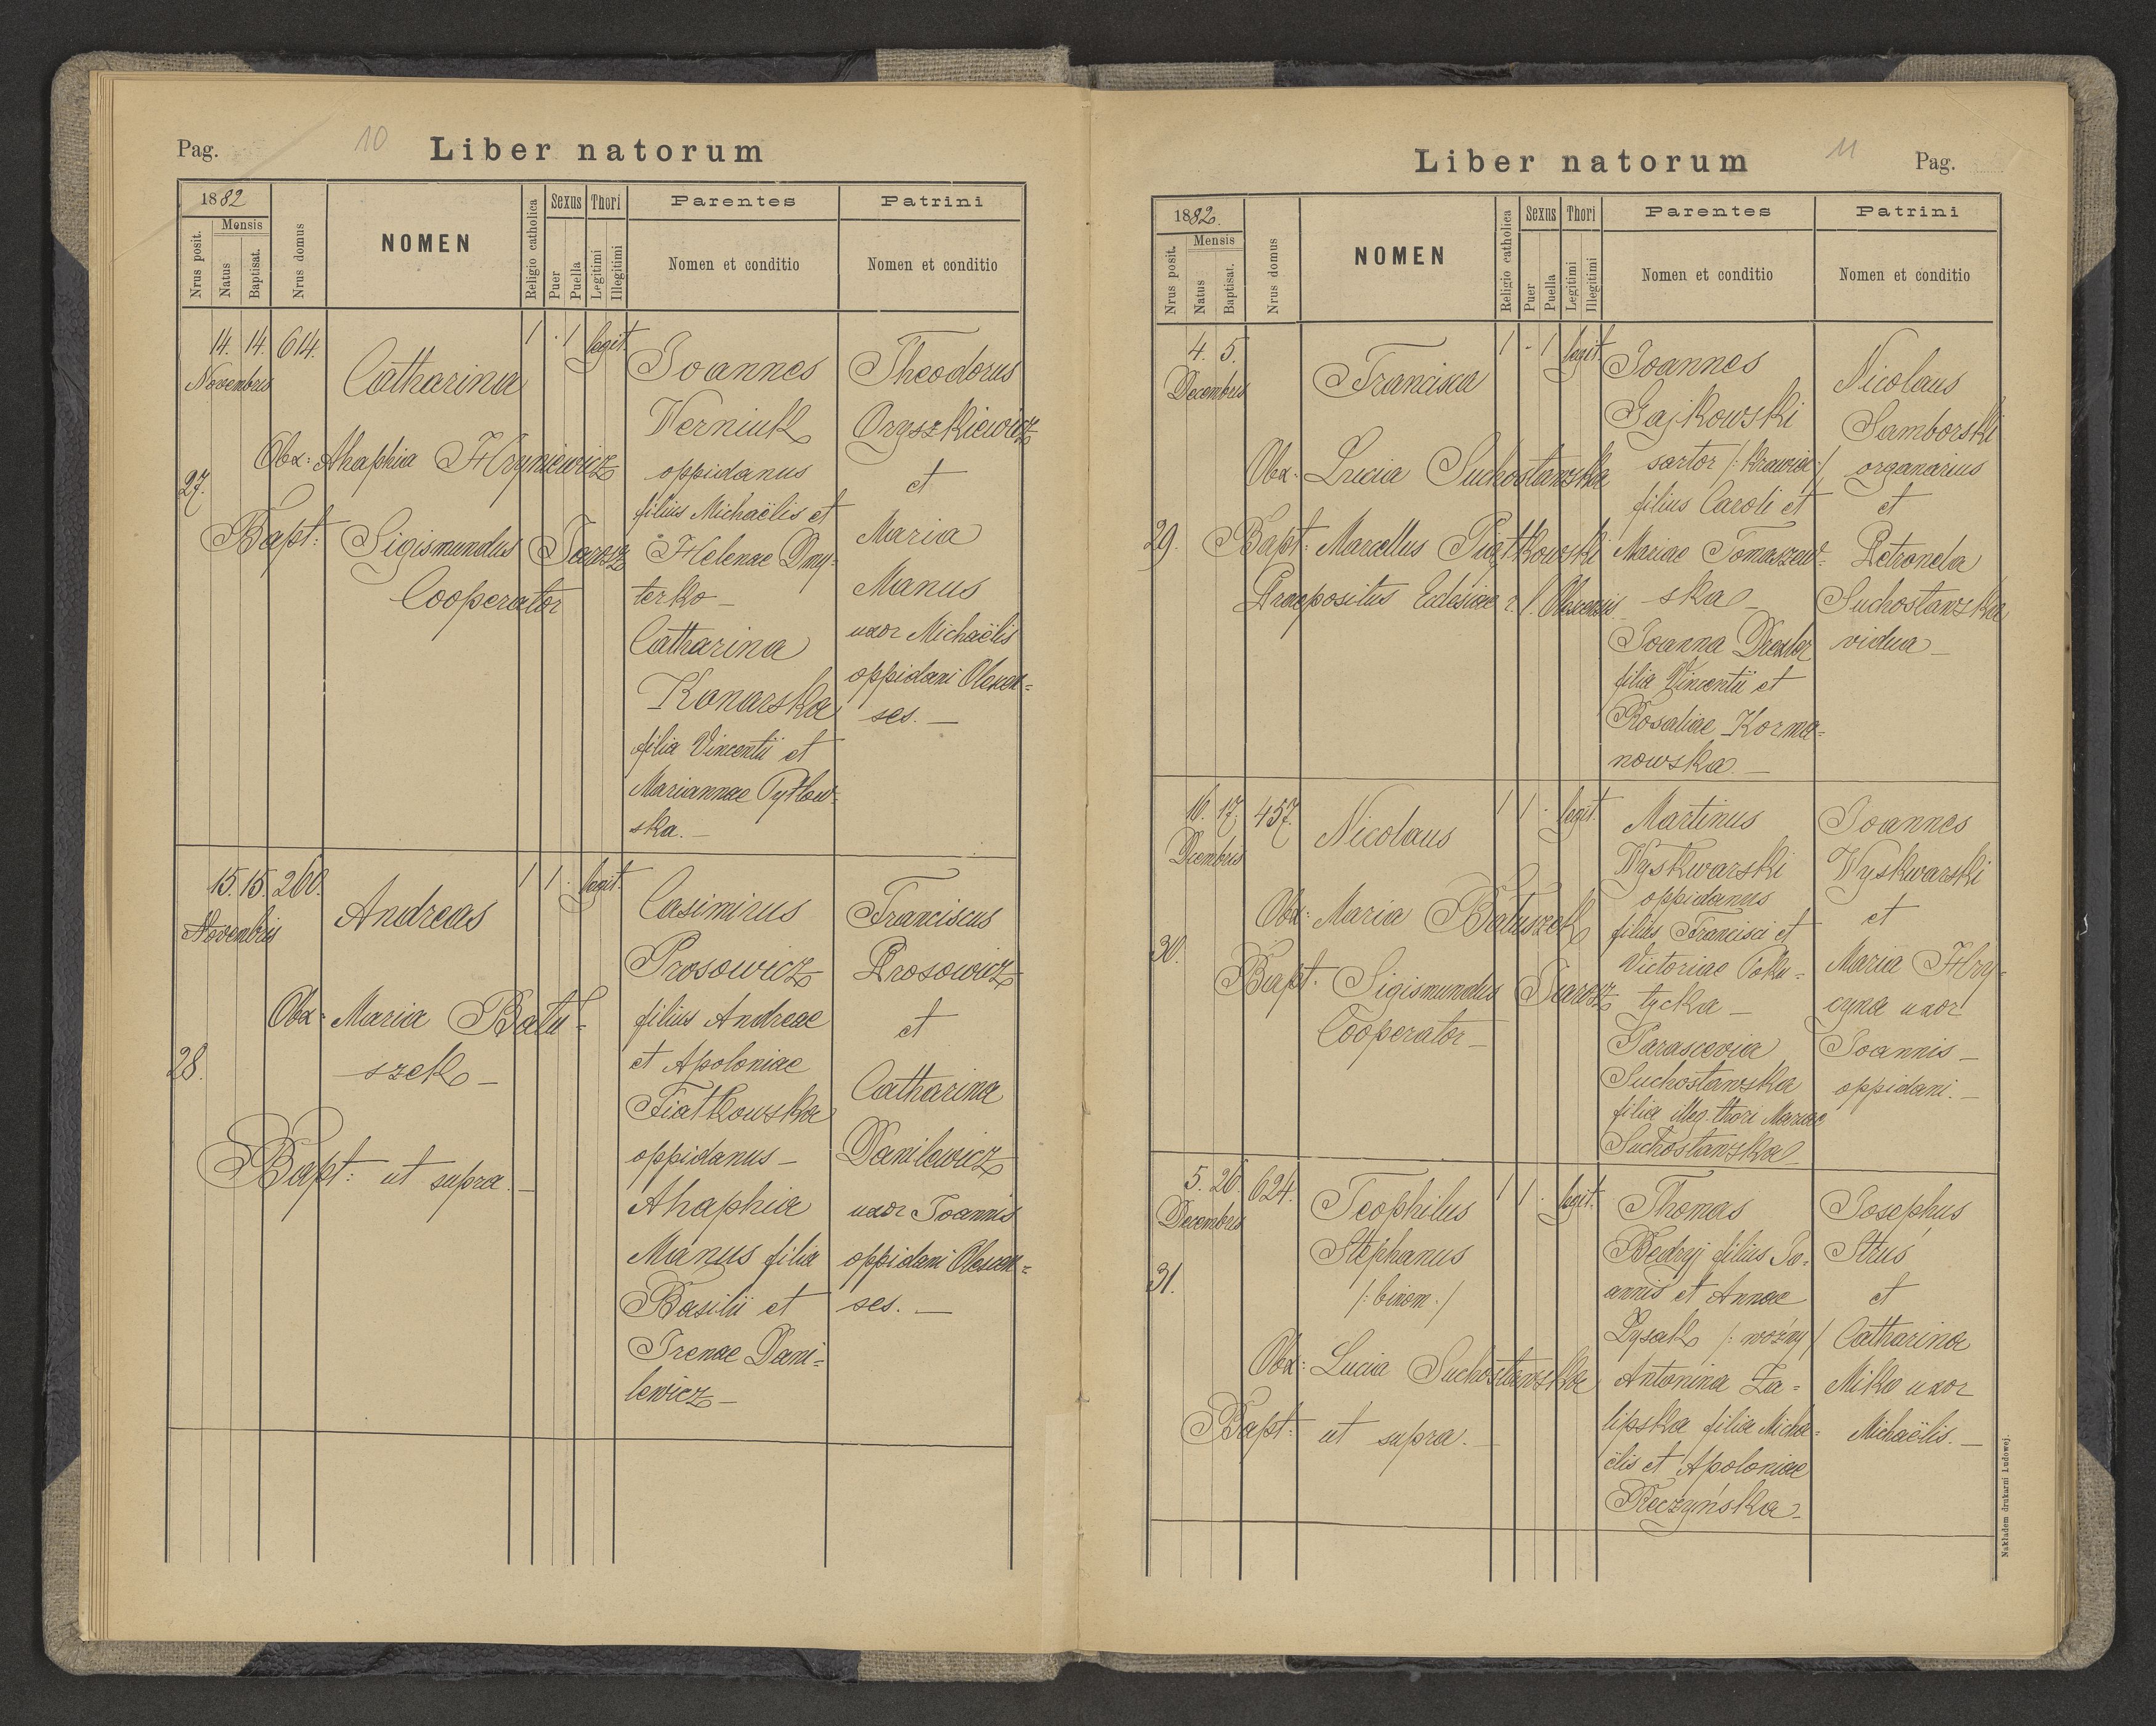 Pag. 10 Liber natorum
1882
Mensis
Nrus posit.
Natus
Baptisat.
Nrus domus
NOMEN
Religio catholica
Sexus
Puer
Puella
Thori
Legitimi
Illegitimi
Parentes
Nomen et conditio
Patrini
Nomen et conditio
27.
14. 14. 614.
Novembris
Catharina
Obx: Ahaphia Hryniewicz
Bapt: Sigismundus Jarosz
Cooperator
1 · 1 legit.
Joannes
Werniuk
oppidanus
filius Michaëlis et
Helenae Dmy-
terko –
Catharina
Konarska
filia Vincentii et
Mariannae Pytlow-
ska. –
Theodorus
Oryszkiewicz
et
Maria
Manus
uxor Michaëlis
oppidani Olexen=
ses. –
28.
15. 15. 260.
Novembris
Andreas
Obx: Maria Batu=
szek –
Bapt: ut supra. –
1 1 · legit.
Casimirus
Prosowicz
filius Andreae
et Apoloniae
Fiatkowska
oppidanus –
Ahaphia
Manus filia
Basilii et
Irenae Dani=
lewicz –
Franciscus
Prosowicz
et
Catharina
Danilewicz
uxor Joannis
oppidani Olexen=
ses. –
Liber natorum 11 Pag.
1882.
Mensis
Nrus posit.
Natus
Baptisat.
Nrus domus
NOMEN
Religio catholica
Sexus
Puer
Puella
Thori
Legitimi
Illegitimi
Parentes
Nomen et conditio
Patrini
Nomen et conditio
29.
4. 5.
Decembris
Francisca
Obx: Lucia Suchostawska
Bapt: Marcellus Piątkowski
Praepositus Ecclesiae r. l. Olexensis
1 - 1 legit.
Joannes
Gajkowski
sartor /: krawiec :/
filius Caroli et
Mariae Tomaszew=
ska –
Joanna Drexler
filia Vincentii et
Rosaliae Korma=
nowska. –
Nicolaus
Samborski
organarius
et
Petronela
Suchostawska
vidua –
30.
16. 17. 457.
Decembris
Nicolaus
Obx: Maria Batuszek
Bapt: Sigismundus Jarosz
Cooperator –
1 1 · legit.
Martinus
Wyskwarski
oppidanus
filius Francisci et
Victoriae Poku=
tycka –
Parascevia
Suchostawska
filia illeg. thori Mariae
Suchostawska
Joannes
Wyskwarski
et
Maria Hry-
cyna uxor
Joannis –
oppidani. –
31.
5. 26. 624.
Decembris
Teophilus
Stephanus
/: binom :/
Obx: Lucia Suchostawska
Bapt: ut supra. –
1 1 · legit.
Thomas
Bedryj filius Jo-
annis et Annae
Lysak /: woźny /
Antonina Za=
lipska filia Micha=
ëlis et Apoloniae
Reczyńska –
Josephus
Struś
et
Catharina
Miko uxor
Michaëlis. –
Nakładem drukarni Ludowej.